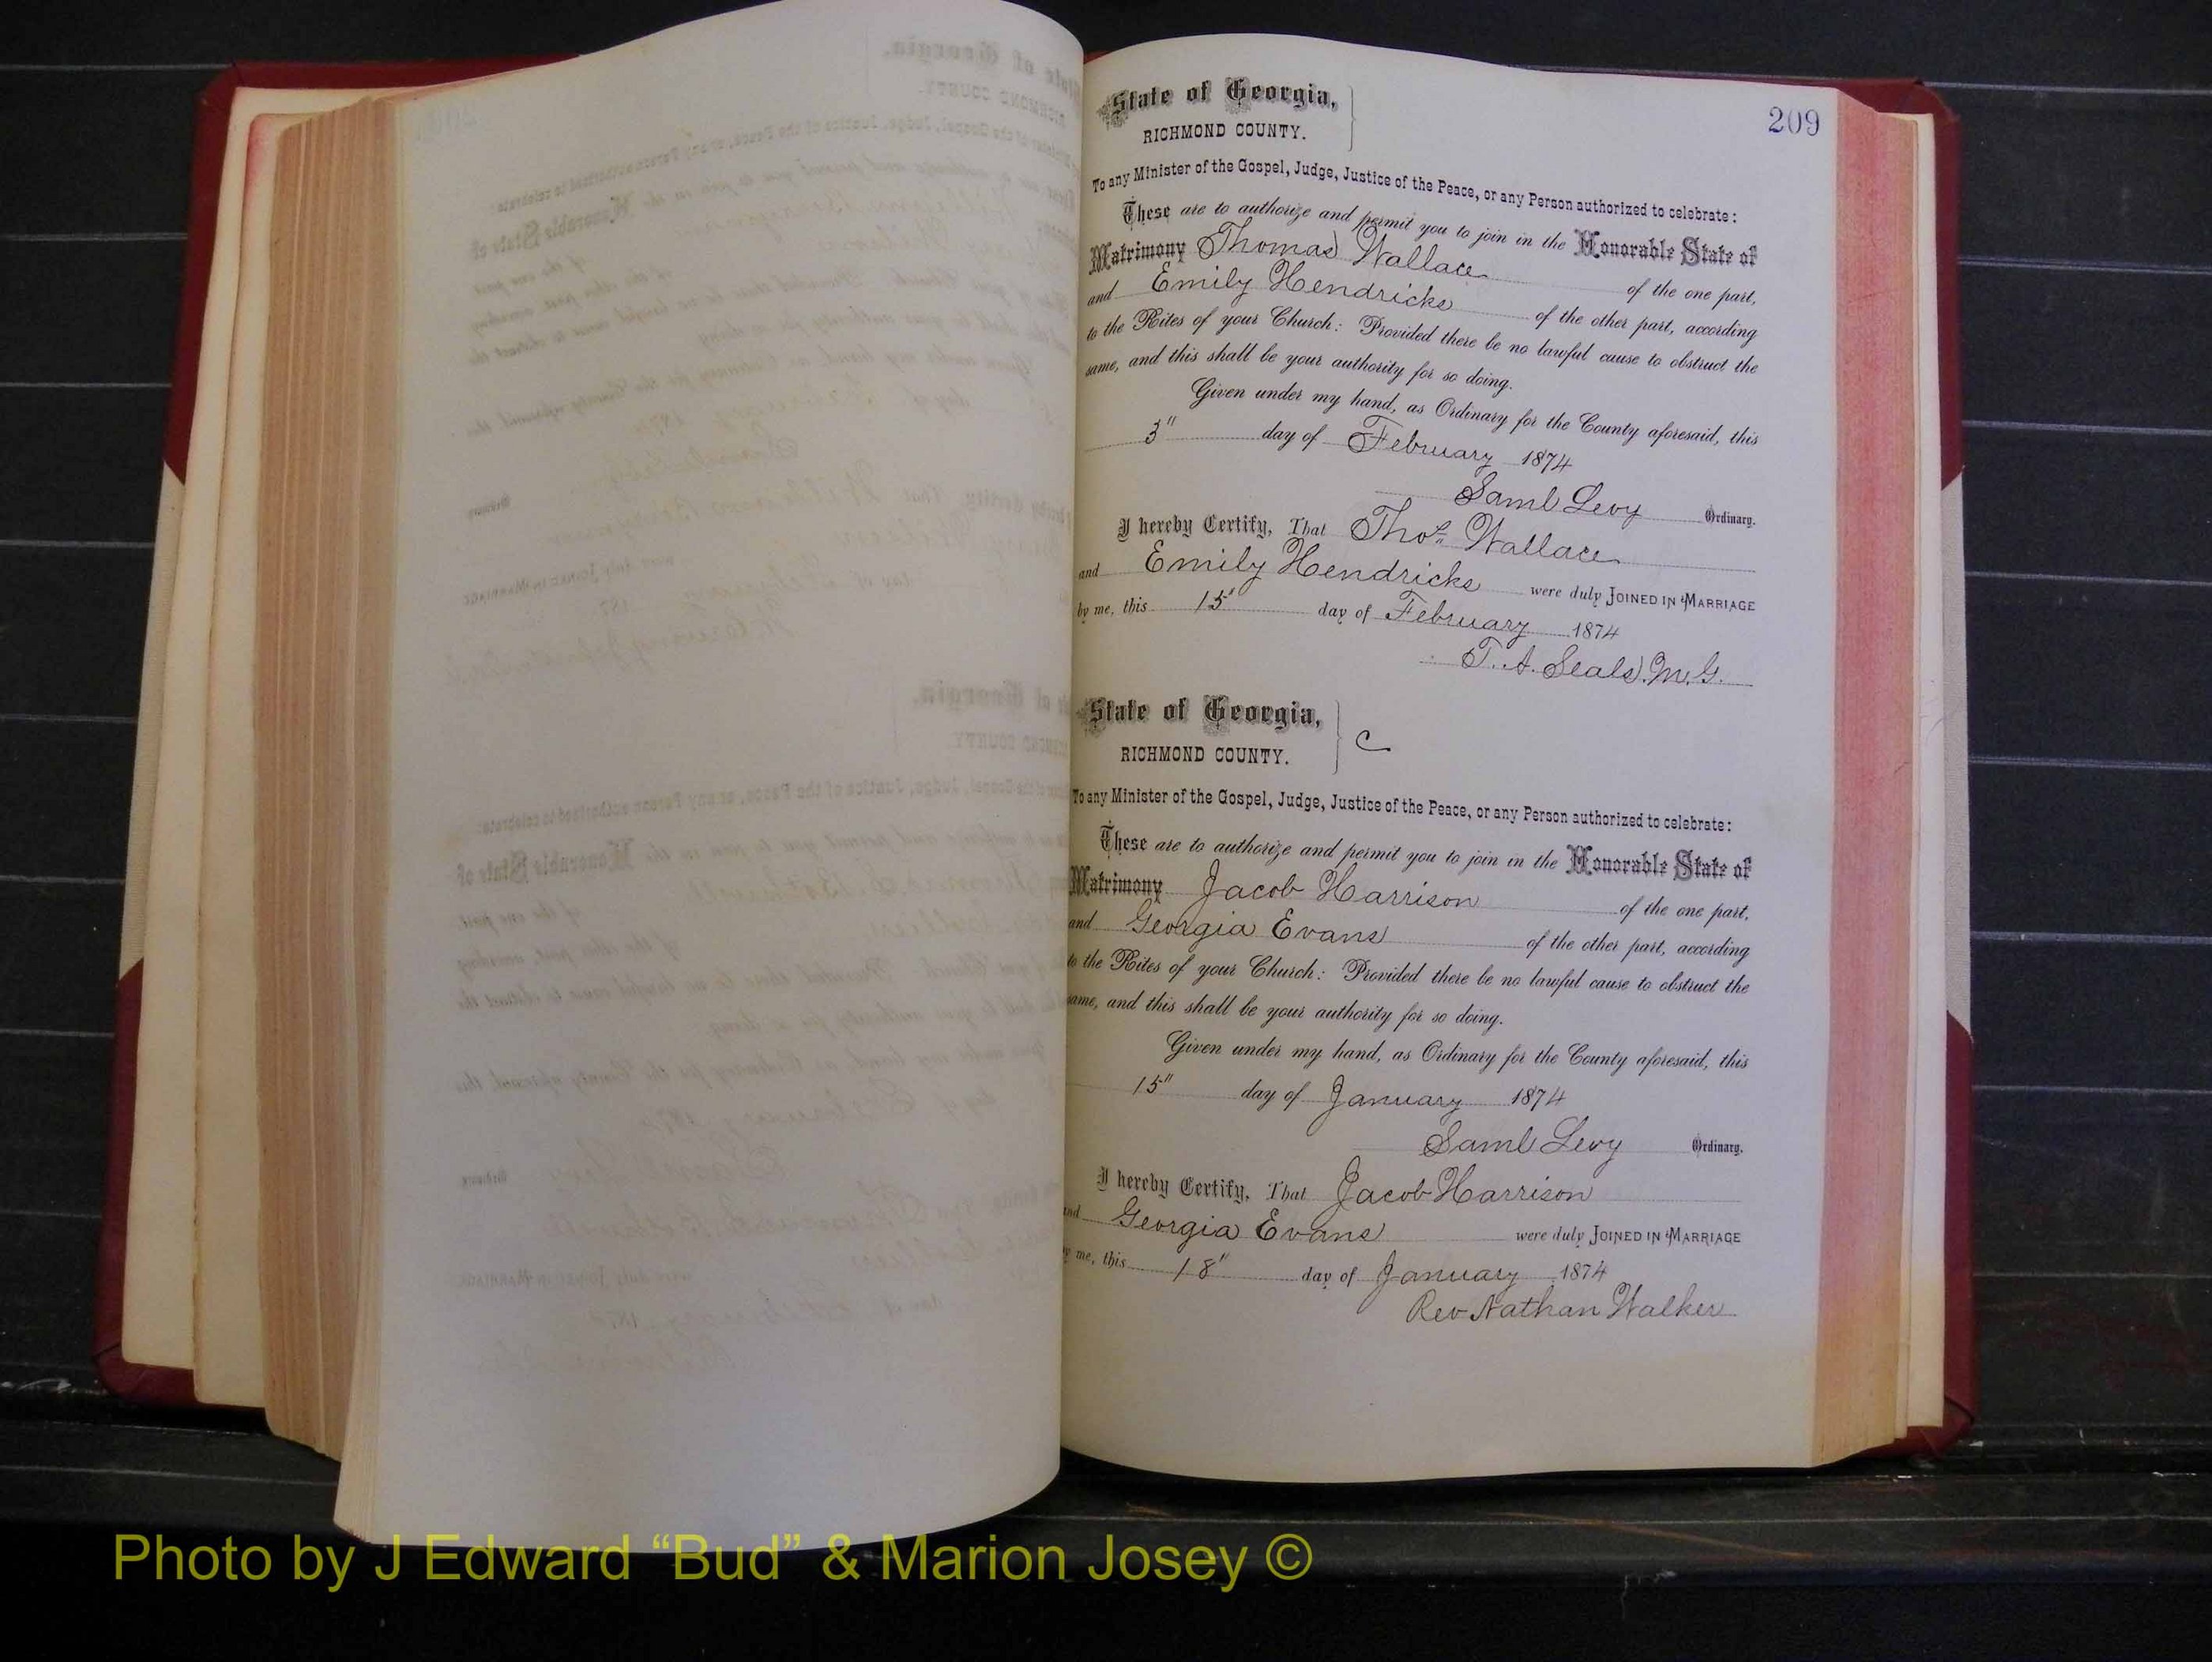 209
State of Georgia,
RICHMOND COUNTY.
To any Minister of the Gospel, Judge, Justice of the Peace, or any Person authorized to celebrate:
These are to authorize and permit you to join in the Honorable State of
Matrimony Thomas Wallace of the one part,
and Emily Hendricks of the other part, according
to the Rites of your Church: Provided there be no lawful cause to obstruct the
same, and this shall be your authority for so doing.
Given under my hand, as Ordinary for the County aforesaid, this
3" day of February 1874
Saml Levy Ordinary.
I hereby Certify, That Thos Wallace
and Emily Hendricks were duly JOINED IN MARRIAGE
by me, this 15" day of February 1874
T. A. Seals. M. G.
State of Georgia,
RICHMOND COUNTY. C
To any Minister of the Gospel, Judge, Justice of the Peace, or any Person authorized to celebrate:
These are to authorize and permit you to join in the Honorable State of
Matrimony Jacob Harrison of the one part,
and Georgia Evans of the other part, according
to the Rites of your Church: Provided there be no lawful cause to obstruct the
same, and this shall be your authority for so doing.
Given under my hand, as Ordinary for the County aforesaid, this
15" day of January 1874
Saml Levy Ordinary.
I hereby Certify, That Jacob Harrison
and Georgia Evans were duly JOINED IN MARRIAGE
by me, this 18" day of January 1874
Rev Nathan Walker
Photo by J Edward “Bud” & Marion Josey ©